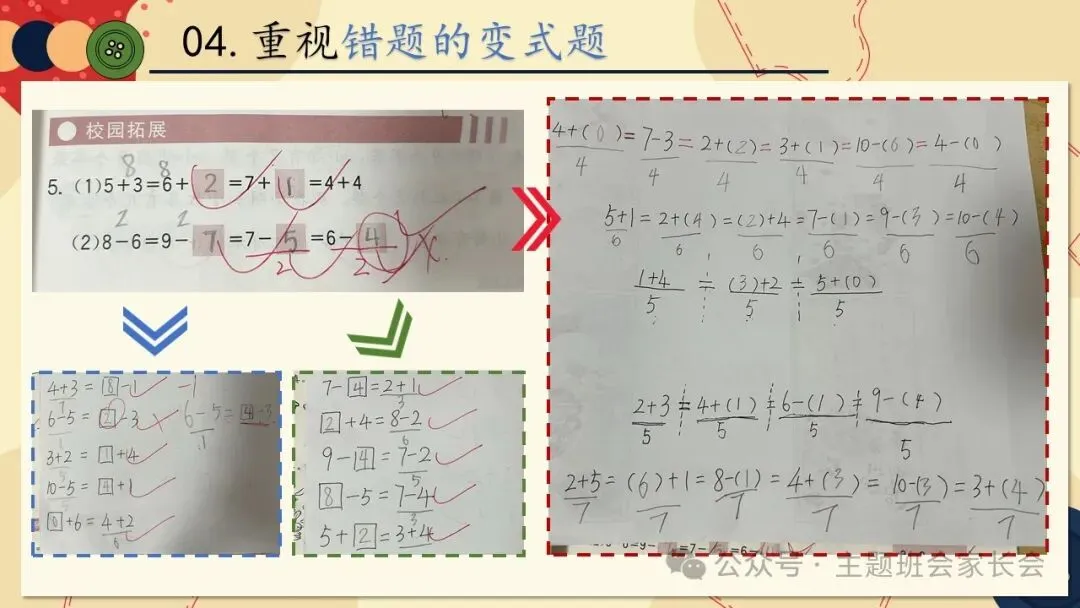 04. 重视错题的变式题
校园拓展
8 8
5. (1) 5+3=6+ 2 =7+ 1 =4+4
2 2
(2) 8-6=9- 7 =7- 5 =6- 4
2 2
4+(0)=7-3=2+(2)=3+(1)=10-(6)=4-(0)
4 4 4 4 4 4
5+1=2+(4)=(2)+4=7-(1)=9-(3)=10-(4)
6 6 6 6 6 6
1+4 = (3)+2 = 5+(0)
5 5 5
2+3 = 4+(1) = 6-(1) = 9-(4)
5 5 5 5
2+5=(6)+1=8-(1)=4+(3)=10-(3)=3+(4)
7 7 7 7 7 7
4+3=8-1
7
6-5=2-3
1
6-5=4-3
1
3+2=1+4
5
10-5=4+1
5
0+6=4+2
6
7-4=2+1
3
2+4=8-2
6
9-4=7-2
5
8-5=7-4
3
5+2=3+4
公众号·主题班会家长会